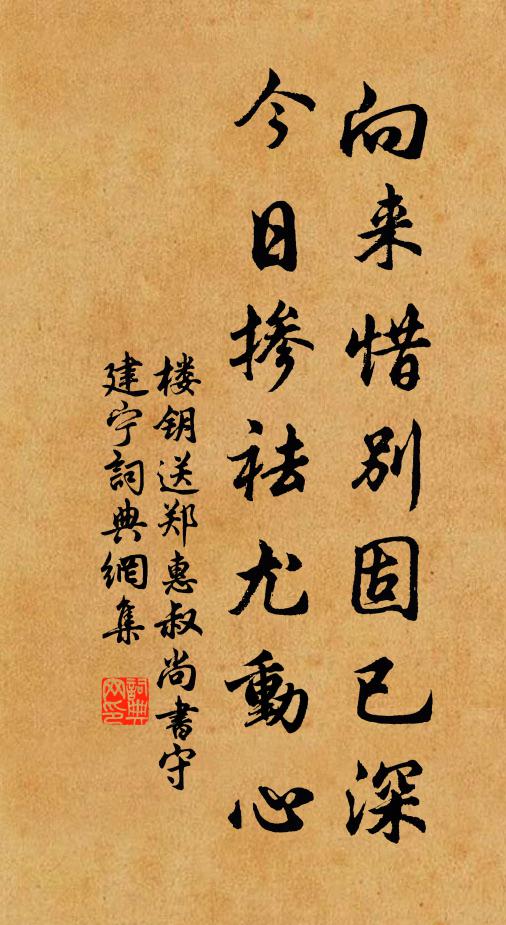 向来惜别固已深
今日掺祛尤動心
楼钥送郑惠叔尚書守
建宁詞典網集
詞典
网印